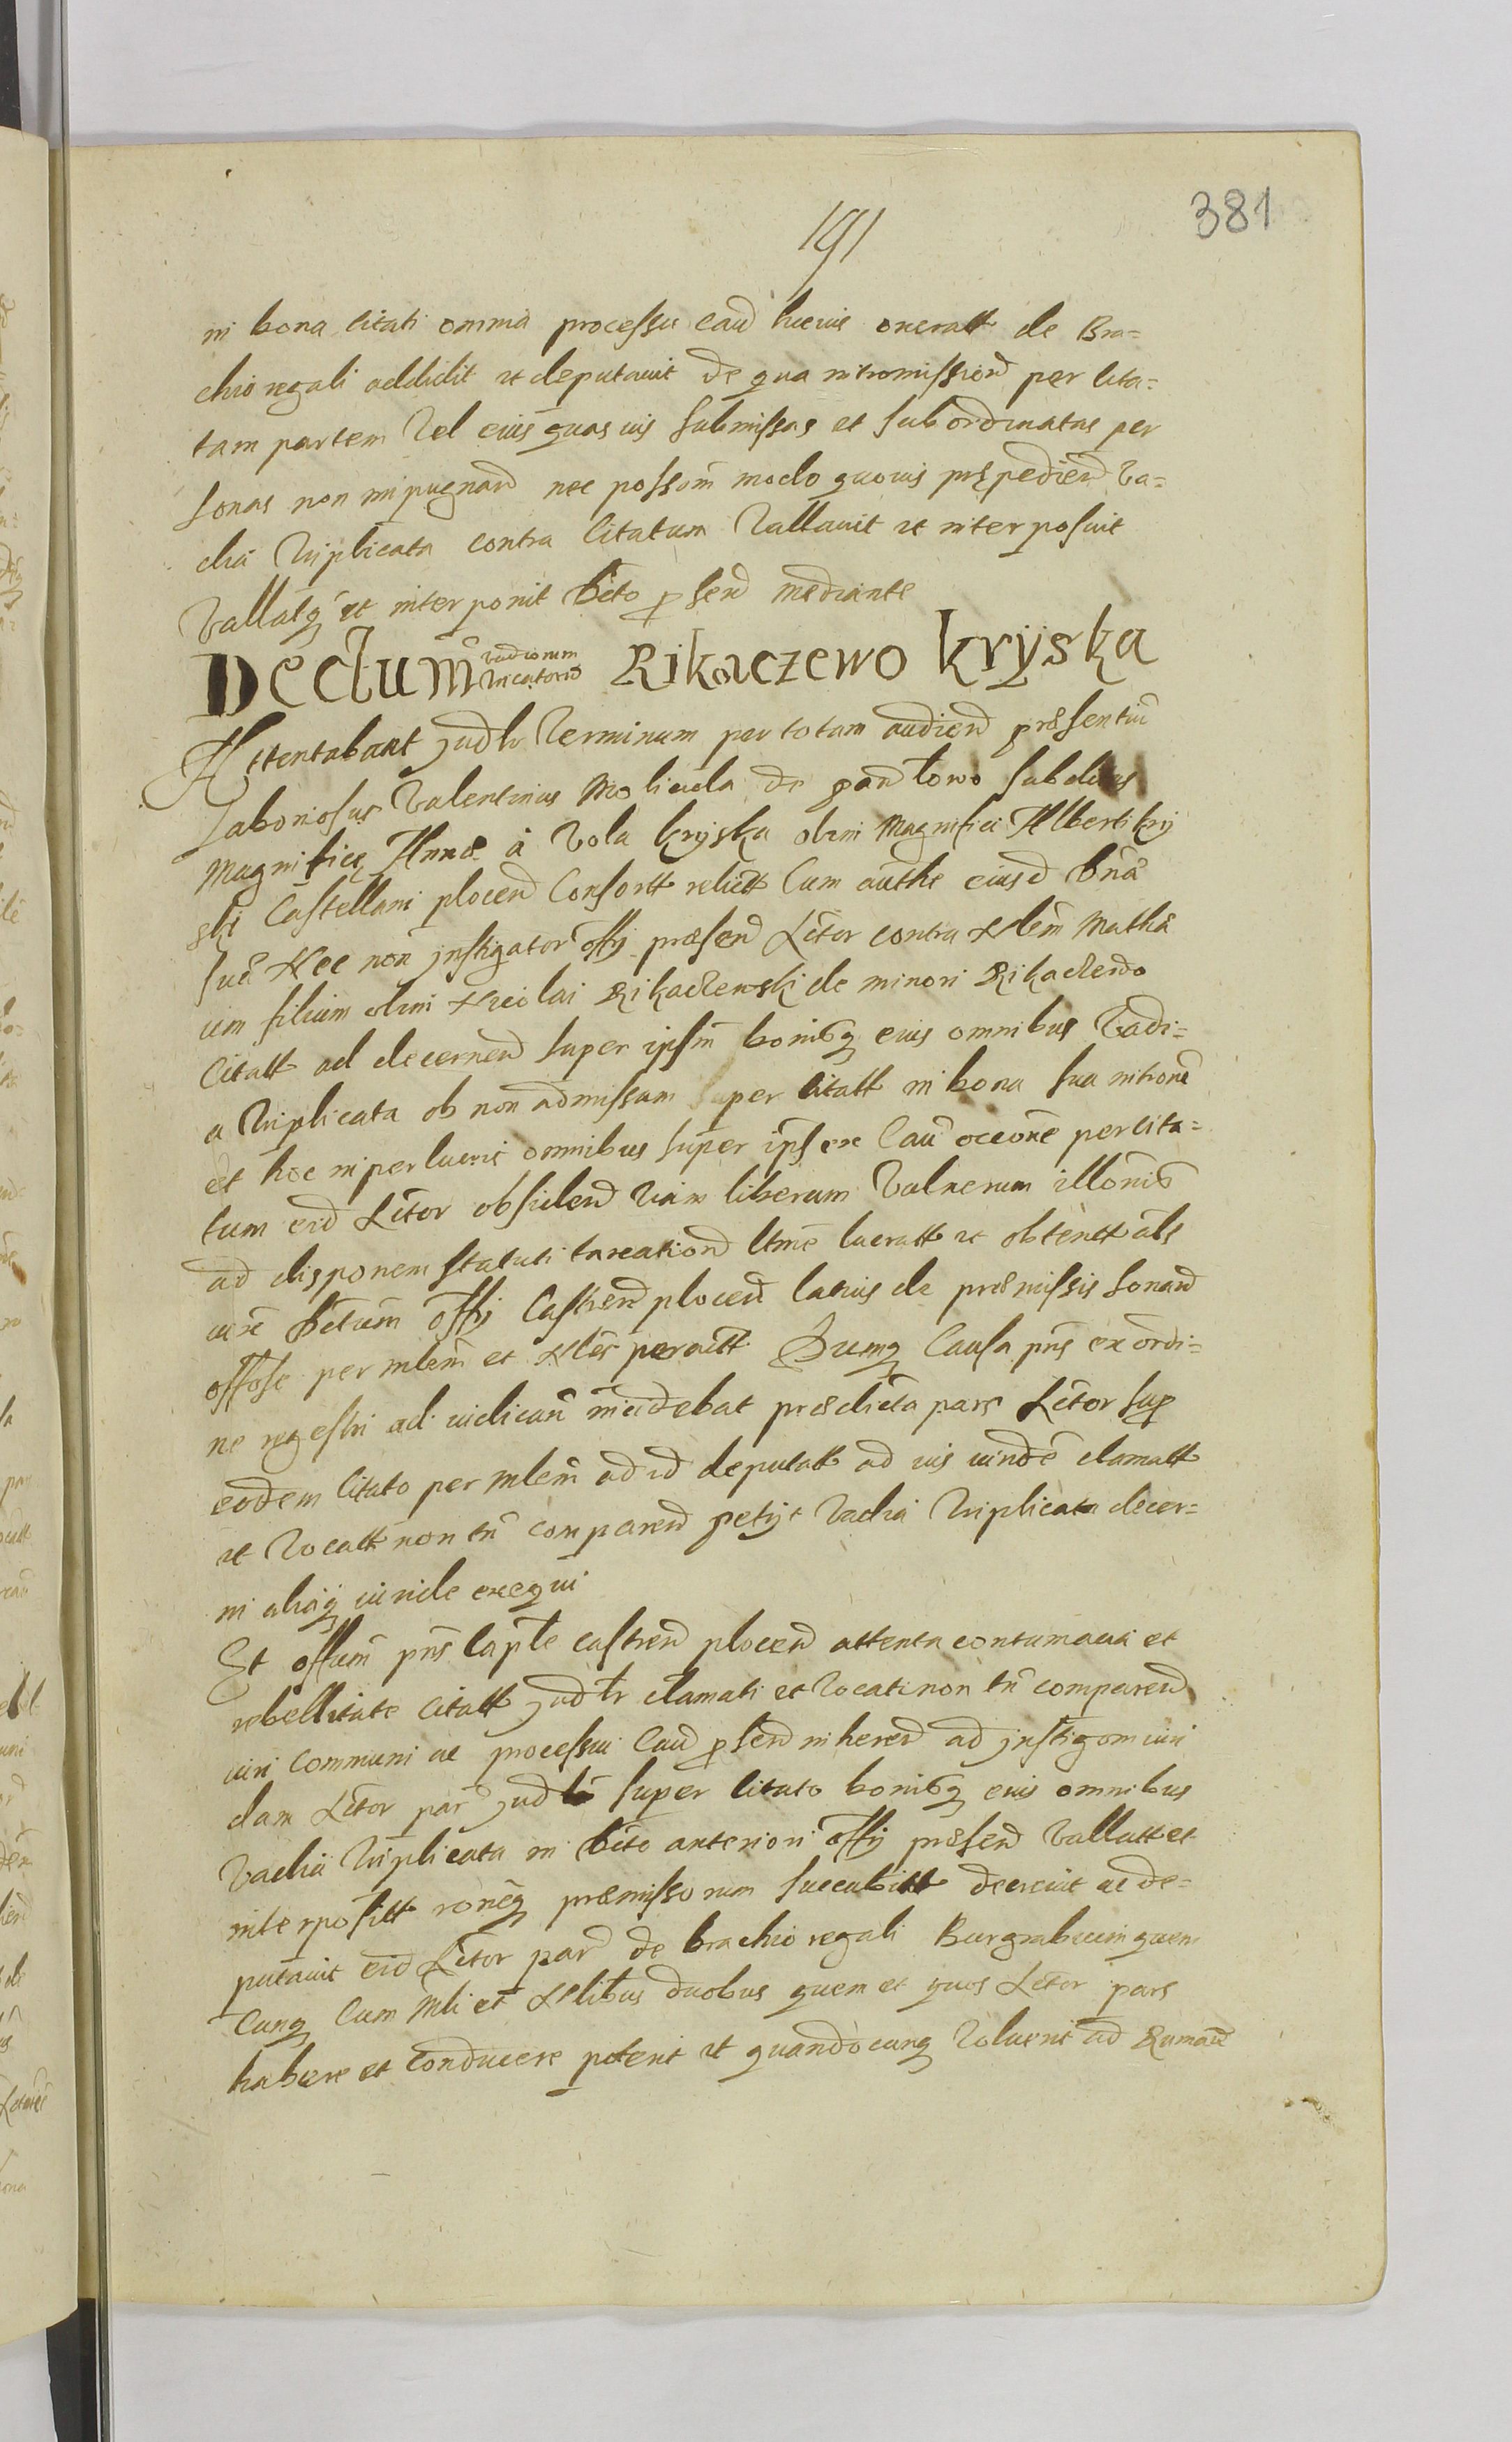 381
191
in bona citati omnia processu caū huius oneratt de Bra=
chio regali addidit et deputauit De qua intromissioñ per cita=
tam partem Vel eius quasuis submissas et subordinatas per
sonas non impugnañ nec possõm modo quouis prępedień Va=
dia triplicata contra Citatum Vallauit et interposuit
Vallatq̃ et interponit Dčto p̱señ mediante
Dečtum vadiorum Rikaczewo Kryska
Attentabant judłr Terminum per totam audień præsentiũ
Laboriosus Valentinus Molienda De Pawłowo subditus
Magnificę Annæ à Vola Kryska olim Magnifici Alberti Kry
ski Castellani Ploceñ Consortt relictt Cum authte eiusđ Dñá
suâ Nec non jnstigator offĩj præseñ Ačtor contra Nłem Mathi
um filium olim Nicolai Rikaczewski de minori Rikaczewo
Citatt ad decerneñ super ipsm̃ bonisq̃ eius omnibus Vadi=
a triplicata ob non admissam super citatt in bona sua intronẽ
et hoc in perlucris omnibus super ipso ex Caũ occõne per cita=
tum eiđ Ačtor obsideñ viam liberam Vulnerum illõnis
ad disponem statuti taxationũ ltme lucratt et obtentt als
iuxẽ Dčtum offĩj Castreñ ploceñ latius de præmissis sonañ
offose per młem et Nłes peractt Dumq̃ Causa pñs ex ordi=
ne regestri ad iudicañ incidebat prædicta pars Ačtor sup̱
eodem Citato per Młem ad id deputatt ad ius uindẽ clamatt
et Vocatt non tñ compareñ petijt Vadia triplicata decer=
ni aliaq̃ uinde exequi
Et offium pñs Capłle castreñ ploceñ attenta contumacia et
rebellitate Citatt judłr clamati et Vocati non tñ compareñ
iuri communi ac processui Caũ p̱señ inhereñ ad jnstigõm iuri
dam Ačtor pař jud super citato bonisq̃ eius omnibus
Vadia triplicata in Dčto anteriori offĩj præseñ Vallatt et
interpositt rõneq̃ præmissorum succubitt decreuit ac de=
putauit eiđ Ačtor pař De brachio regali Burgrabium quem
cunq̃ Cum Młi et Nłibus duobus quem et quos Ačtor pars
habere et conducere poterit et quandocunq̃ Voluerit ad Rumač